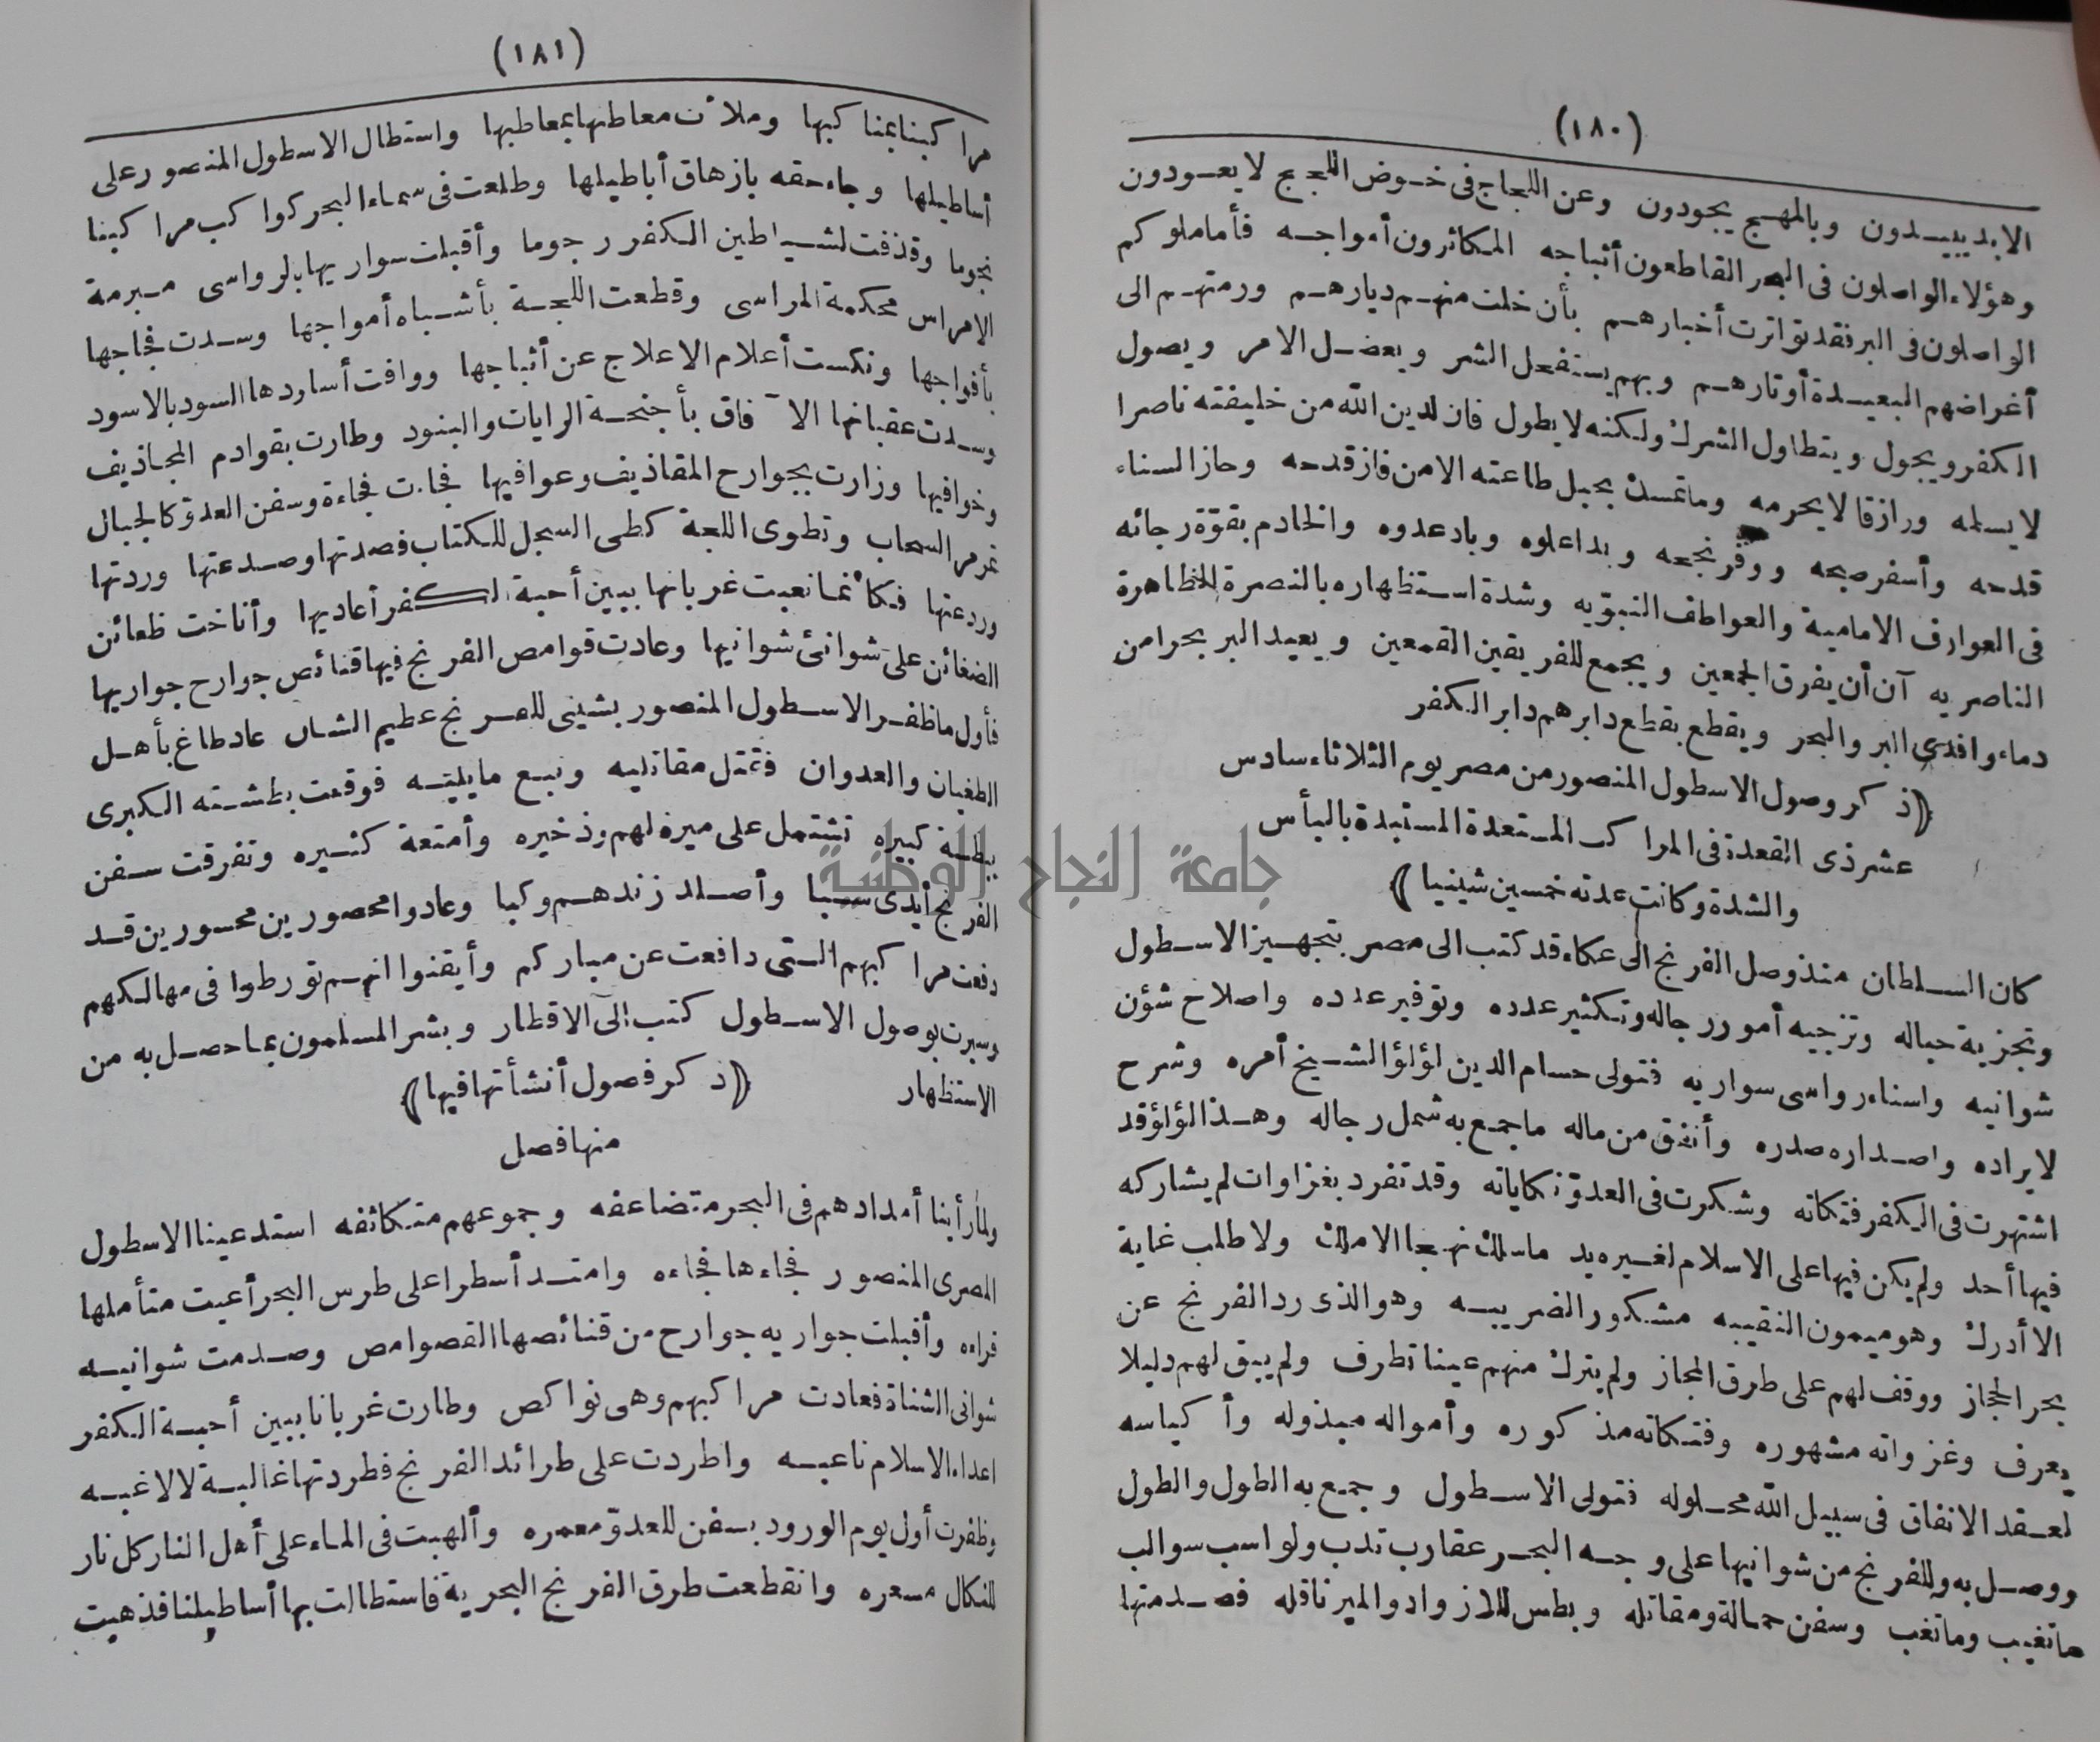 (١٨٠)
الابد يبيدون وبالمهج يجودون وعن اللجاج في خوض اللجج لا يعودون
وهؤلاء الواصلون في البحر القاطعون أثباجه المكاثرون أمواجه فأما ملوكم
الواصلون في البر فقد تواترت أخبارهم بأن خلت منهم ديارهم ورمتهم الى
أغراضهم البعيدة أوتارهم وبهم يستفحل الشر ويعضل الامر ويصول
الكفر ويجول ويتطاول الشرك ولكنه لا يطول فان لدين الله من خليفته ناصرا
لا يسلمه ورازقا لا يحرمه وما تمسك بحبل طاعته الا من فاز قدحه وحاز السناء
قدحه وأسفر صبحه ووفر نجحه وبدا علوه وباد عدوه والخادم بقوة رجائه
في العوارف الامامية والعواطف النبويه وشدة استظهاره بالنصرة الظاهرة
الناصريه آن أن يفرق الجمعين ويجمع للفريقين القمعين ويعيد البر بحرا من
دماء وافدي البر والبحر ويقطع بقطع دابرهم دابر الكفر
(ذكر وصول الاسطول المنصور من مصر يوم الثلاثاء سادس
عشر ذى القعدة في المراكب المستعدة المستبدة بالبأس
والشدة وكانت عدته خمسين شينيا)
كان السلطان منذ وصل الفرنج الى عكاء قد كتب الى مصر بتجهيز الاسطول
وتجزية حباله وتزجيه أمور رجاله وتكثير عدده وتوفير عدده واصلاح شؤن
شوانيه واسناء رواسى سواريه فتولى حسام الدين لؤلؤ الشيخ أمره وشرح
لايراده واصداره صدره وأنفق من ماله ما جمع به شمل رجاله وهذا لؤلؤ قد
اشتهرت في الكفر فتكاته وشكرت في العدو نكاياته وقد تفرد بغزاوات لم يشاركه
فيها أحد ولم يكن فيها على الاسلام لغيره يد ما سلك نهجا الا ملك ولا طلب غاية
الا أدرك وهو ميمون النقيبه مشكور الضريبه وهو الذى رد الفرنج عن
بحر الحجاز ووقف لهم على طرق المجاز ولم يترك منهم عينا تطرف ولم يبق لهم دليلا
يعرف وغزواته مشهوره وفتكاته مذكوره وأمواله مبذوله وأكياسه
لعقد الانفاق في سبيل الله محلوله فتولى الاسطول وجمع به الطول والطول
ووصل به وللفرنج من شوانيها على وجه البحر عقارب تدب ولواسب سوالب
ما تغيب وما تغب وسفن حمالة ومقاتله وبطس للازواد والمير ناقله فصدمتها
(١٨١)
مراكبنا بمناكبها وملأت معاطنها بمعاطبها واستطال الاسطول المنصور على
أساطيلها وجاء حقه بازهاق أباطيلها وطلعت في سماء البحر كواكب مراكبنا
نجوما وقذفت لشياطين الكفر رجوما وأقبلت سواريها بالرواسى مبرمة
الامراس محكمة المراسى وقطعت اللجة بأشباه أمواجها وسدت فجاجها
بأفواجها ونكست أعلام الاعلاج عن أثباجها ووافت أساودها السود بالاسود
وسدت عقبانها الآفاق بأجنحة الرايات والبنود وطارت بقوادم المجاذيف
وخوافيها وزارت بجوارح المقاذيف وعوافيها فجاءت فجاءة وسفن العدو كالجبال
تمر مر السحاب وتطوى اللجة كطى السجل للكتاب فصدتها وصدعتها وردتها
وردعتها فكأنما نعبت غربانها ببين أحبة الكفر أعاديها وأناخت ظعائن
الضغائن على شوانئ شوانيها وعادت قوامص الفرنج فيها قنائص جوارح جواريها
فأول ما ظفر الاسطول المنصور بشينى للفرنج عظيم الشان عاد طاغ بأهل
الطغيان والعدوان فقتل مقاتليه وتبع ما يليه فوقعت بطشته الكبرى
ببطسة كبيره تشتمل على ميرة لهم وذخيره وأمتعة كثيره وتفرقت سفن
الفرنج أيدى سبا وأصلد زندهم وكبا وعادوا محصورين محسورين قد
دفعت مراكبهم التى دافعت عن مباركم وأيقنوا انهم تورطوا في مهالكهم
وسيرت بوصول الاسطول كتب الى الاقطار وبشر المسلمون بما حصل به من
الاستظهار (ذكر فصول أنشأتها فيها)
منها فصل
ولما رأينا أمدادهم في البحر متضاعفه وجموعهم متكاثفه استدعينا الاسطول
المصرى المنصور فجاءها فجاءه وامتد أسطرا على طرس البحر أعيت متأملها
قراءه وأقبلت جواريه جوارح من قنائصها القوامص وصدمت شوانيه
شوانى الشناة فعادت مراكبهم وهى نواكص وطارت غربانا ببين أحبة الكفر
اعداء الاسلام ناعبه واطردت على طرائد الفرنج فطردتها غالبة لا لاغبه
وظفرت أول يوم الورود بسفن للعدو معمره وألهبت في الماء على أهل النار كل نار
للنكال مسعره وانقطعت طرق الفرنج البحرية فاستطالت بها أساطيلنا فذهبت
جامعة النجاح الوطنية